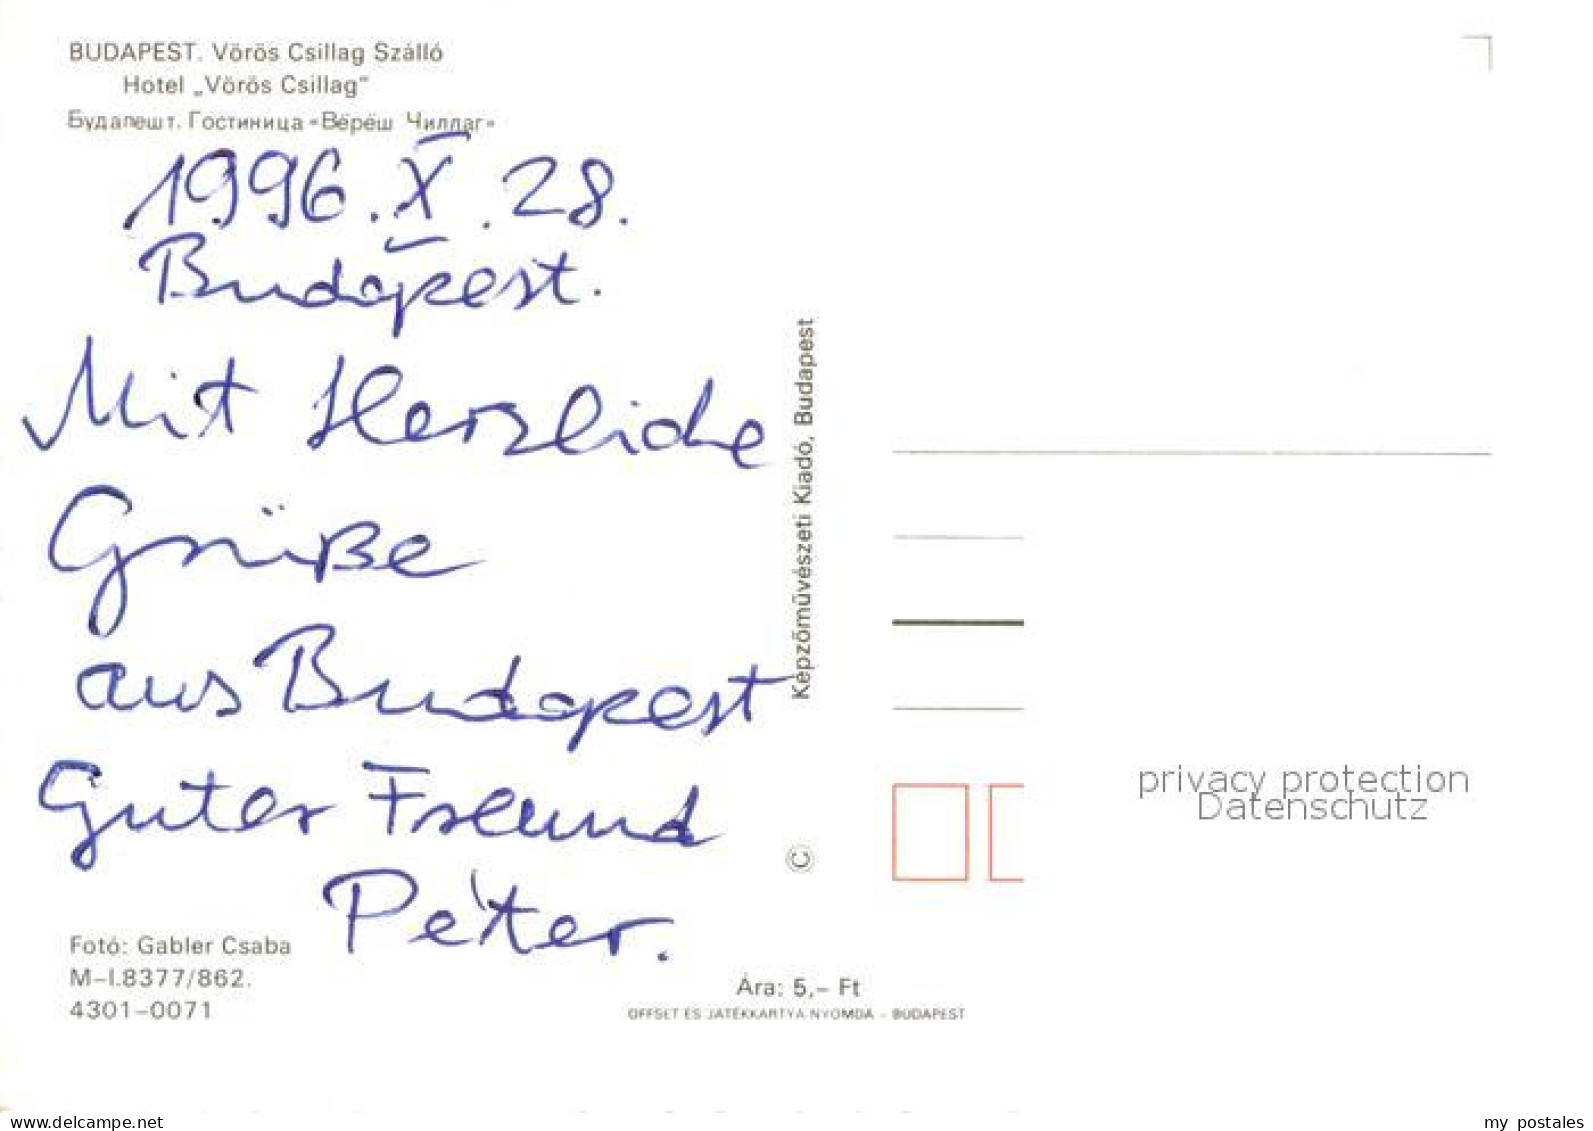 BUDAPEST. Vörös Csillag Szálló
Hotel „Vörös Csillag"
Будапешт. Гостиница «Вёрёш Чиллаг»
1996. X. 28.
Budapest.
Mit Herzliche
Grüße
aus Budapest
Guter Freund
Péter.
Fotó: Gabler Csaba
M–I.8377/862.
4301–0071
Képzőművészeti Kiadó, Budapest
©
Ára: 5,– Ft
OFFSET ÉS JÁTÉKKÁRTYA NYOMDA – BUDAPEST
privacy protection
Datenschutz
www.delcampe.net
my_postales